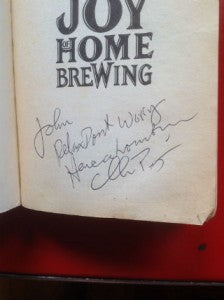 JOY
OF HOME
BREWING
John
Relax Don't Worry
Have a homebrew